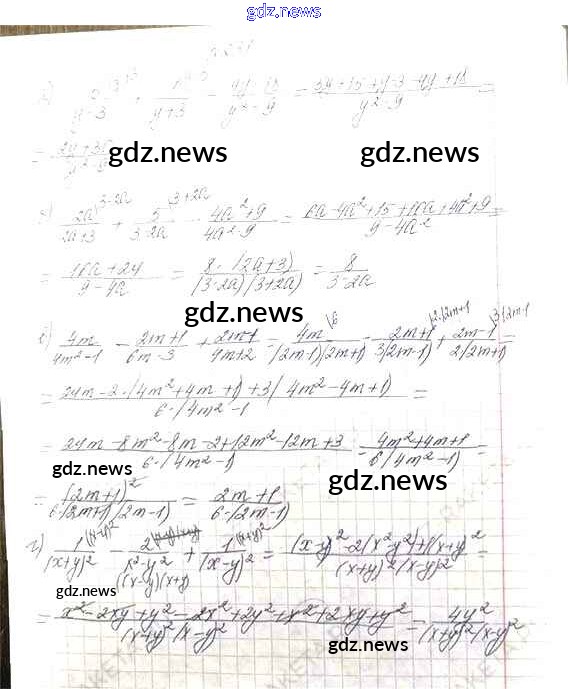 gdz.news
= (3y+15+y-3-4y+18)/(y²-9) =
gdz.news gdz.news
б) 2a/(2a+3) \3-2a + 5/(3-2a) \3+2a - (4a²+9)/(4a²-9) = (6a-4a²+15+10a+4a²+9)/(9-4a²) =
= (16a+24)/(9-4a²) = 8·(2a+3)/((3-2a)(3+2a)) = 8/(3-2a)
gdz.news
в) 4m/(4m²-1) - (2m+1)/(6m-3) + (2m-1)/(4m+2) = 4m/((2m-1)(2m+1)) \6 - (2m+1)/(3(2m-1)) \2·(2m+1) + (2m-1)/(2(2m+1)) \3(2m-1) =
= (24m-2·(4m²+4m+1)+3(4m²-4m+1))/(6·(4m²-1)) =
= (24m-8m²-8m-2+12m²-12m+3)/(6·(4m²-1)) = (4m²+4m+1)/(6(4m²-1)) =
gdz.news gdz.news
= (2m+1)²/(6·(2m+1)(2m-1)) = (2m+1)/(6·(2m-1))
г) 1/(x+y)² \(x-y)² - 2/(x²-y²) + 1/(x-y)² \(x+y)² = ((x-y)²-2(x²-y²)+1(x+y)²)/((x+y)²(x-y)²) =
(x-y)(x+y)
gdz.news
= (x²-2xy+y²-2x²+2y²+x²+2xy+y²)/((x+y)²(x-y)²) = 4y²/((x+y)²(x-y)²)
gdz.news